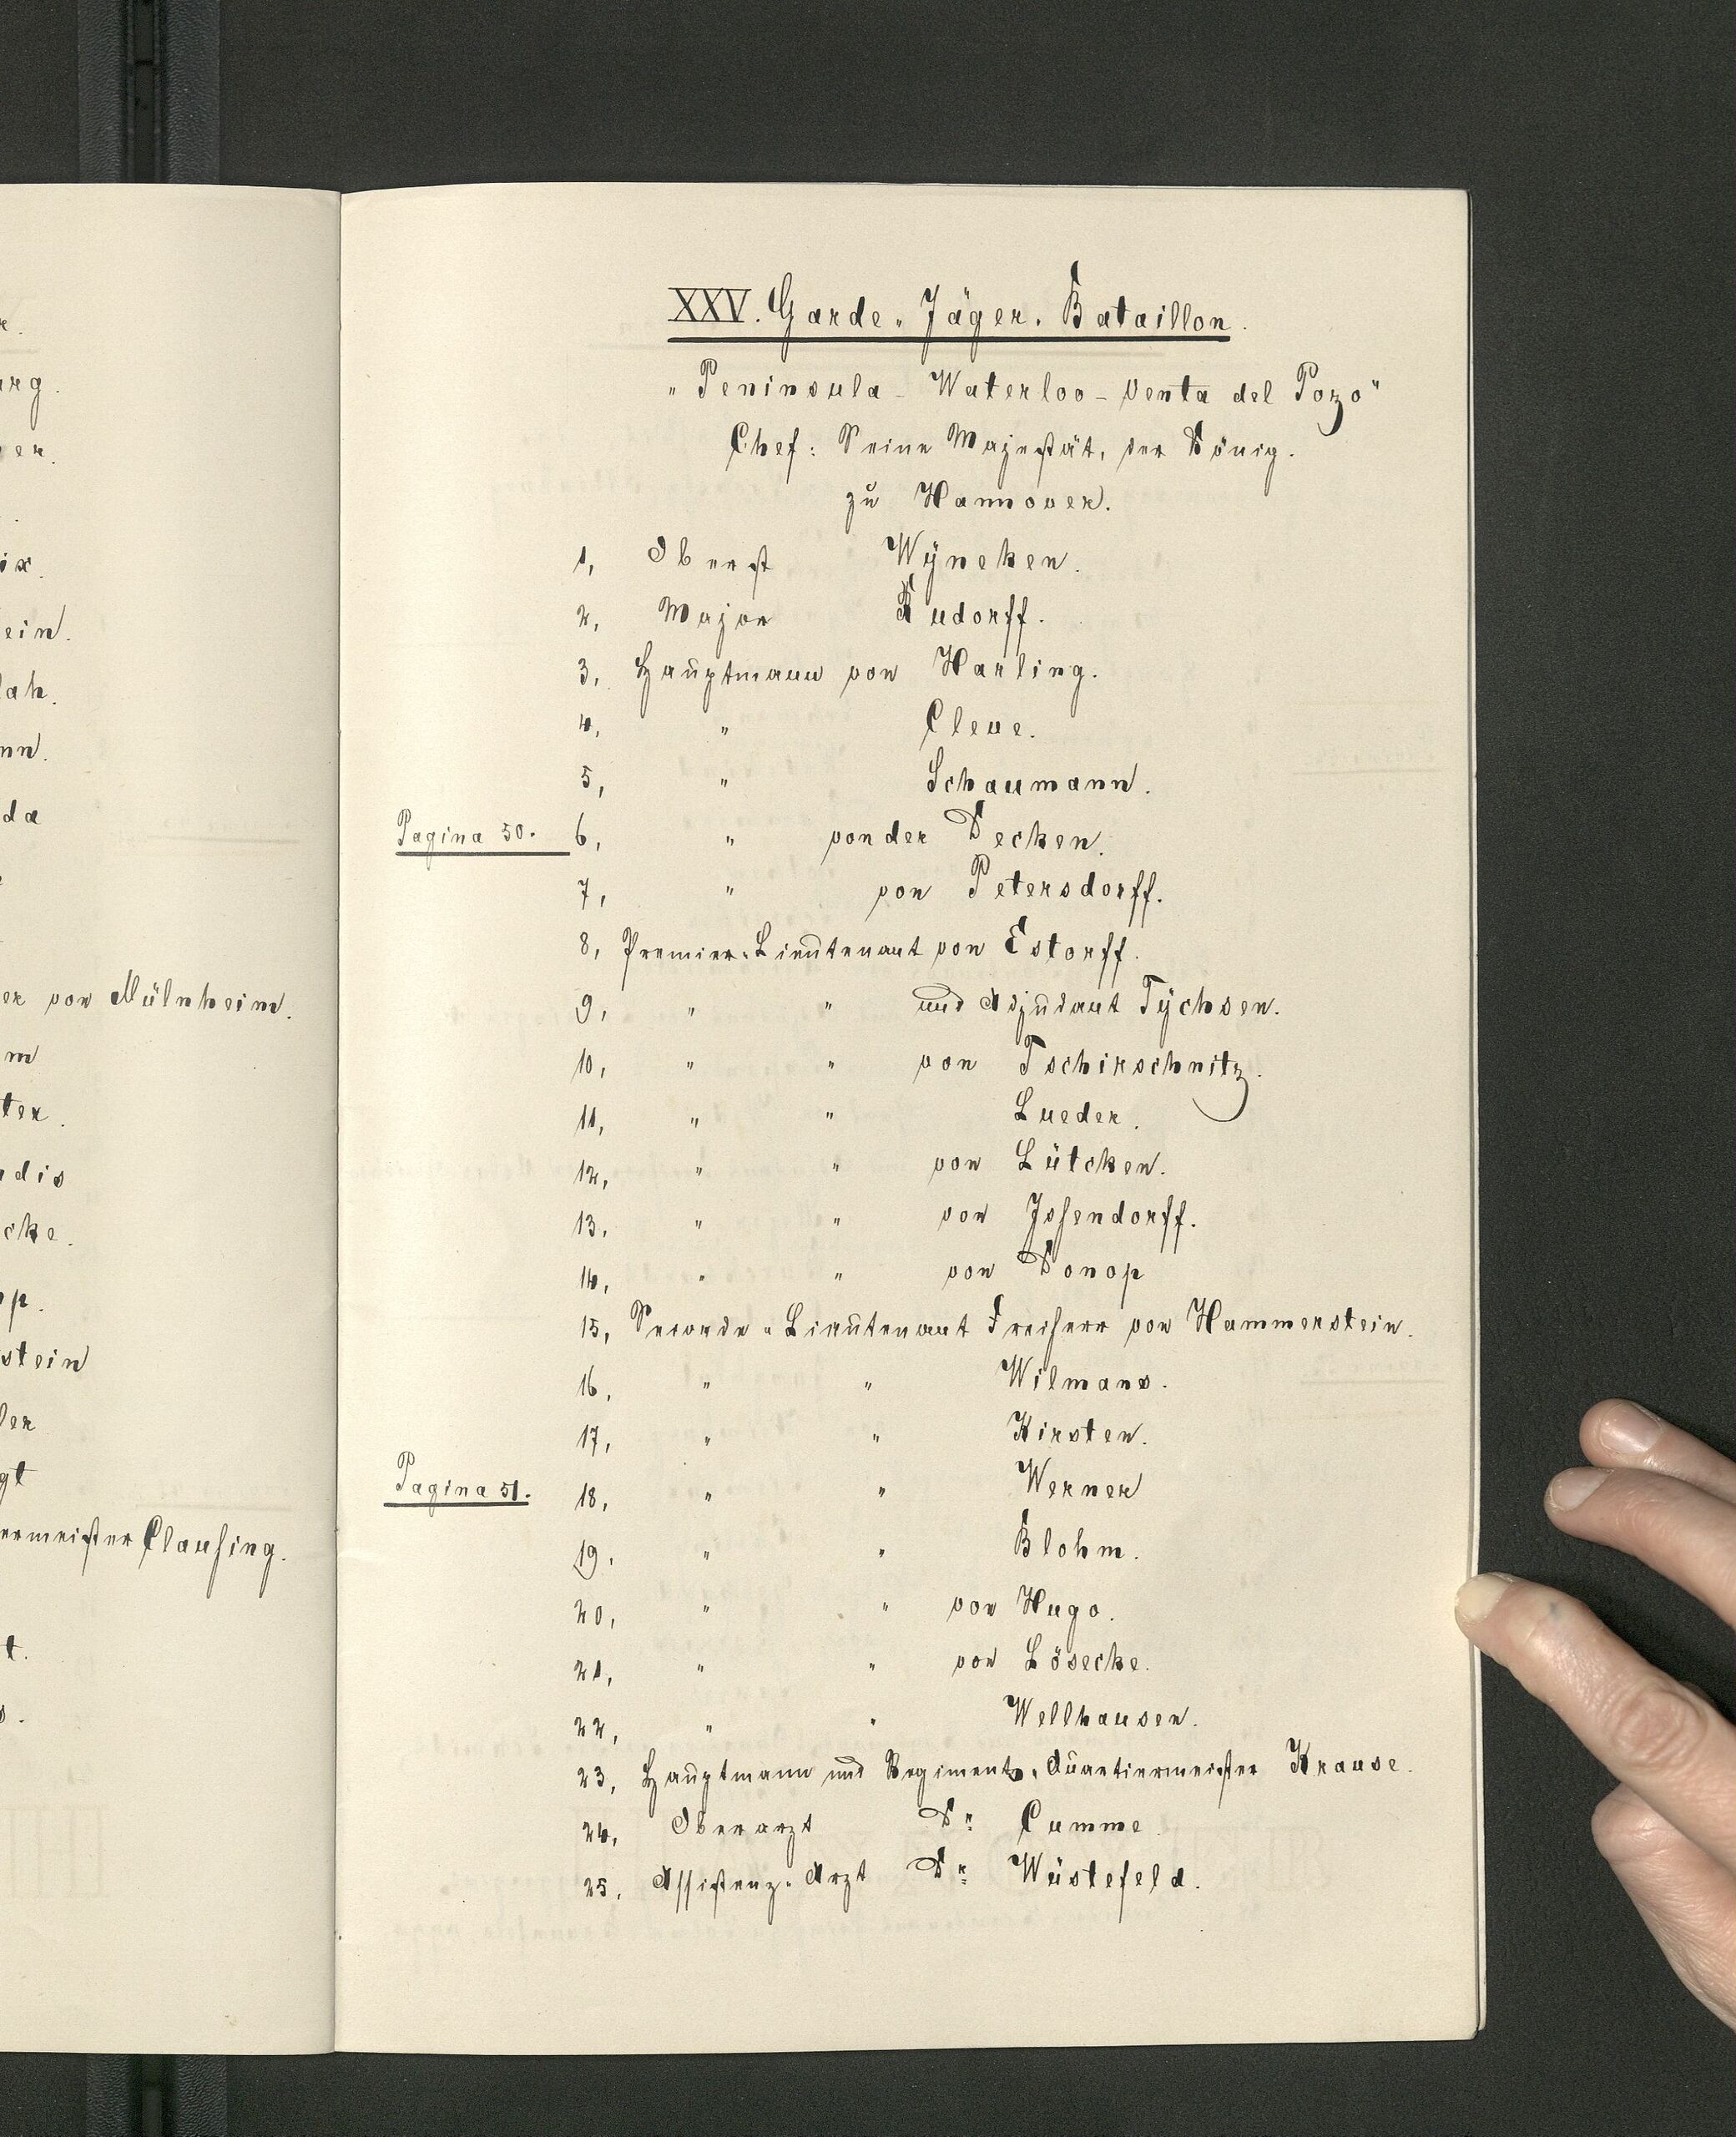 XXV. Garde-Jäger-Bataillon.
"Peninsula - Waterloo - Venta del Pozo"
Chef: Seine Majestät, der König.
zu Hannover.
1, Oberst Wÿneken.
2, Major Rudorff.
3, Hauptmann von Harling.
4, " Cleve.
5, " Schaumann.
Pagina 50. 6, " von der Decken.
7, " von Petersdorff.
8, Premier-Lieutenant von Estorff.
9, " " und Adjudant Tÿchsen.
10, " " von Tschirschnitz.
11, " " Lueder.
12, " " von Lütcken.
13, " " von Issendorff.
14, " " von Donop
15, Seconde-Lieutenant Freiherr von Hammerstein.
16, " " Wilmans.
17, " " Kirsten.
Pagina 51. 18, " " Werner
19, " " Blohm.
20, " " von Hugo.
21, " " von Lösecke.
22, " " Wellhausen.
23, Hauptmann und Regiments-Quartiermeister Krause.
24, Oberarzt Dr. Cumme
25, Assistenz-Arzt Dr. Wüstefeld.
er von Müllnheim.
ermeister Clausing.